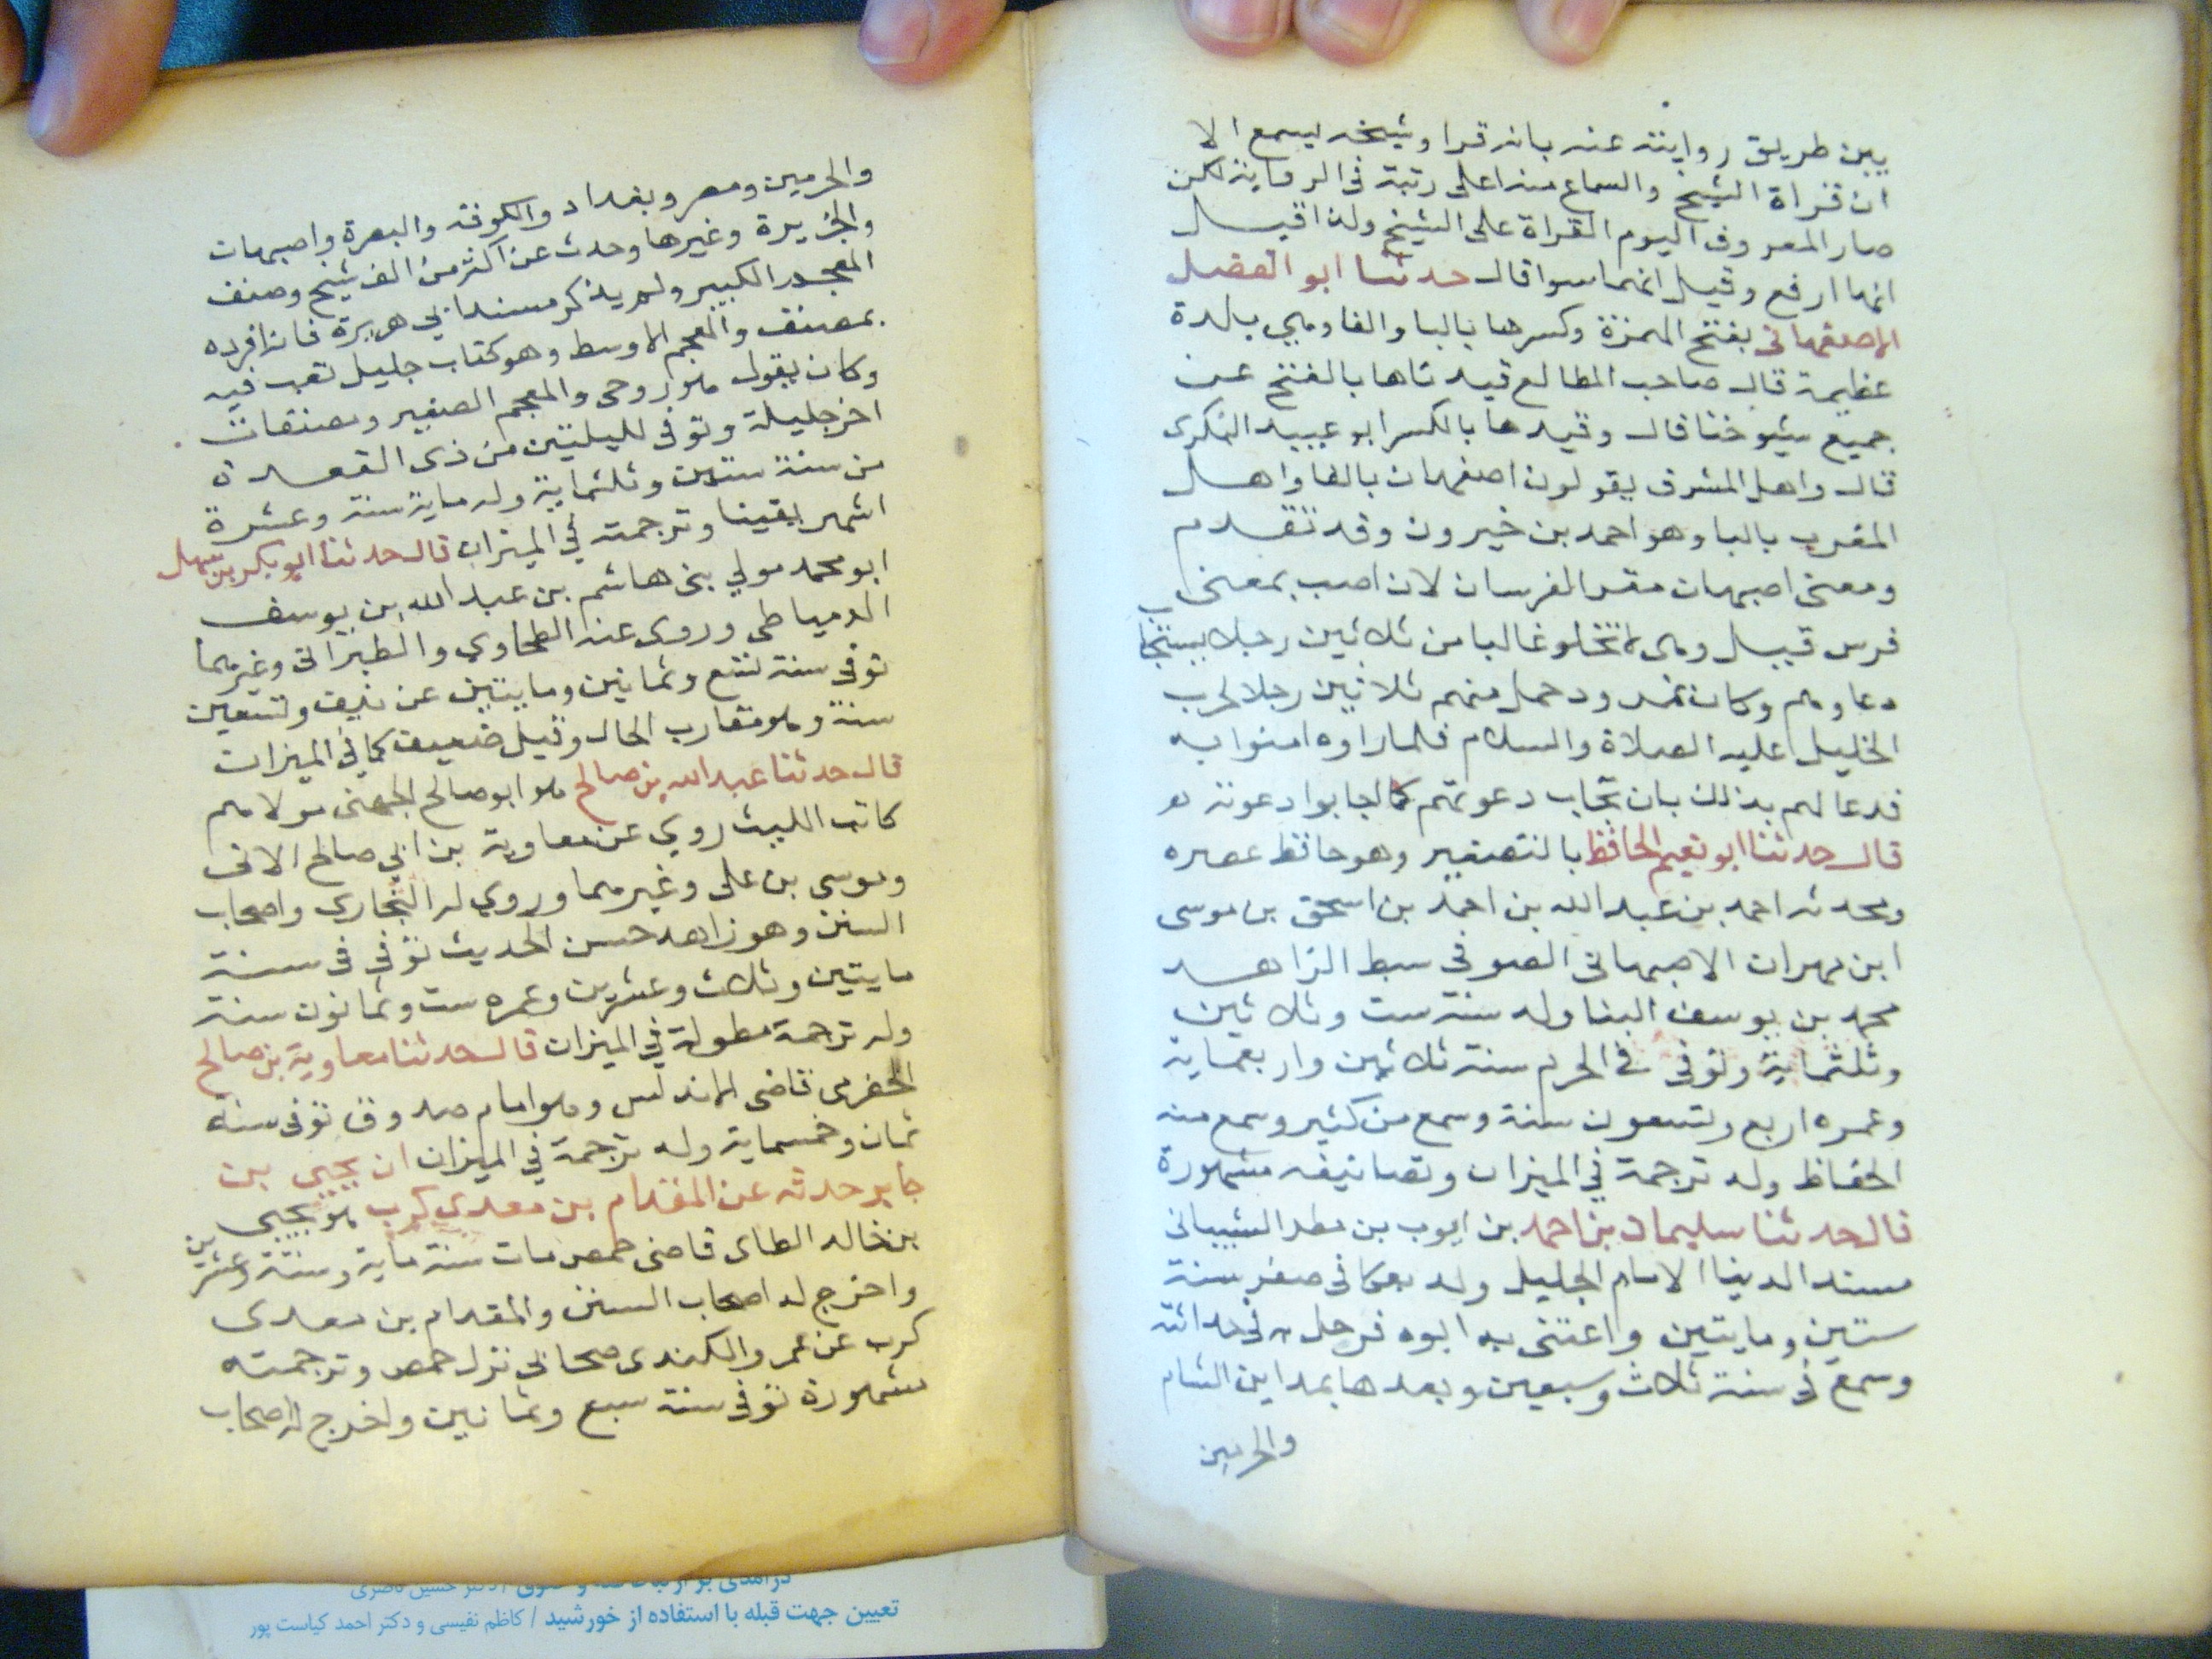 يبين طريق روايته عنه بانه قرا وشيخه ليسمع الا
ان قراة الشيخ والسماع منه اعلى رتبة في الرواية لكن
صار المعروف اليوم القراة على الشيخ ولذا قيل
انها ارفع وقيل انهما سوا قال حدثنا ابو الفضل
الاصفهاني بفتح الهمزة وكسرها بالبا والفا وهي بلدة
عظيمة قال صاحب المطالع قيدناها بالفتح عن
جميع شيوخنا قال وقيدها بالكسر ابو عبيد البكرى
قال واهل المشرق يقولون اصفهان بالفا واهل
المغرب بالبا وهو احمد بن خيرون وقد تقدم
ومعنى اصبهان مقر الفرسان لان اصب بمعنى
فرس قيل وهى لا تخلو غالبا من ثلاثين رجلا يستجاب
دعاوهم وكان نمرود حمل منهم ثلاثين رجلا لحرب
الخليل عليه الصلاة والسلام فلما راوه امنوا به
فدعا لهم بذلك بان تجاب دعوتهم كما اجابوا دعوته
قال حدثنا ابو نعيم الحافظ بالتصغير وهو حافظ عصره
ومحدثه احمد بن عبد الله بن احمد بن اسحق بن موسى
ابن مهران الاصبهاني الصوفي سبط الزاهد
محمد بن يوسف البنا ولد سنة ست وثلاثين
وثلثماية وتوفي في المحرم سنة ثلاثين واربعماية
وعمره اربع وتسعون سنة وسمع من كثير وسمع منه
الحفاظ وله ترجمة في الميزان وتصانيفه مشهورة
قال حدثنا سليمان بن احمد بن ايوب بن مطر الشيباني
مسند الدنيا الامام الجليل ولد بعكا في صفر سنة
ستين ومايتين واعتنى به ابوه فرحل به في حداثته
وسمع في سنة ثلاث وسبعين وبعدها بمداين الشام
والحرمين
والحرمين ومصر وبغداد والكوفة والبصرة واصبهان
والجزيرة وغيرها وحدث عن اكثر من الف شيخ وصنف
المعجم الكبير ولم يذكر مسند ابي هريرة فانه افرده
بمصنف والمعجم الاوسط وهو كتاب جليل تعب فيه
وكان يقول هو روحى والمعجم الصغير ومصنفات
اخر جليلة وتوفى لليلتين من ذى القعدة
من سنة ستين وثلثماية وله ماية سنة وعشرة
اشهر يقينا وترجمته في الميزان قال حدثنا ابو بكر بن سهل
ابو محمد مولي بني هاشم بن عبد الله بن يوسف
الدمياطي وروى عنه الطحاوي والطبراني وغيرهما
توفي سنة تسع وثمانين ومايتين عن نيف وتسعين
سنة وهو مقارب الحال وقيل ضعيف كما في الميزان
قال حدثنا عبد الله بن صالح هو ابو صالح الجهني مولاهم
كاتب الليث روي عن معاوية بن ابي صالح الاتى
وموسى بن على وغيرهما وروي له البخاري واصحاب
السنن وهو زاهد حسن الحديث توفي في سنة
مايتين وثلاث وعشرين وعمره ست وثمانون سنة
وله ترجمة مطولة في الميزان قال حدثنا معاوية بن صالح
الحضرمى قاضى الاندلس وهو امام صدوق توفى سنة
ثمان وخمسماية وله ترجمة في الميزان ان يحيى بن
جابر حدثه عن المقدام بن معدي كرب هو يحيى بن
بن خالد الطاى قاضى حمص مات سنة ماية وستة وعشرين
واخرج له اصحاب السنن والمقدام بن معدى
كرب عن عمرو الكندى صحابي نزل حمص وترجمته
مشهورة توفي سنة سبع وثمانين واخرج له اصحاب
تعیین جهت قبله با استفاده از خورشید / کاظم نفیسی و دکتر احمد کیاست پور